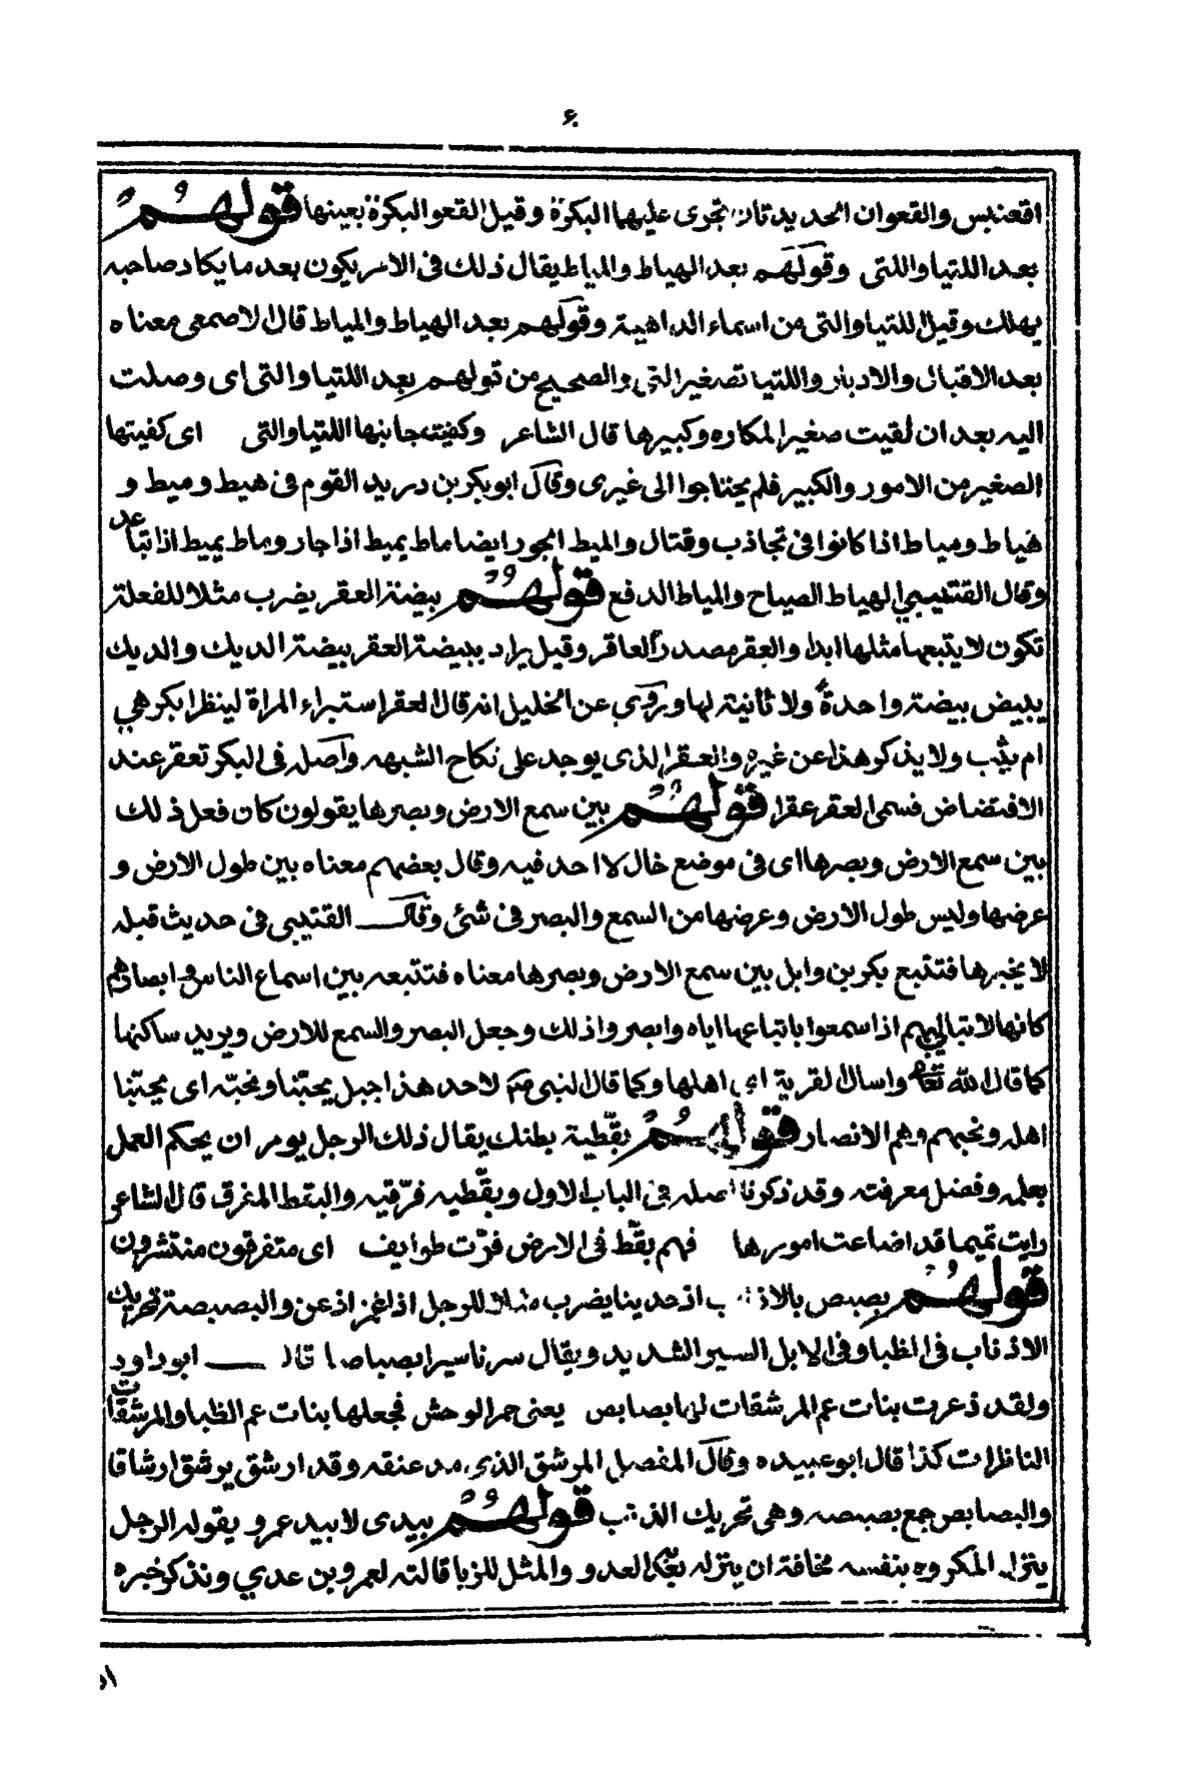 ۶۰
اقعنبس والقعوان الحديدتان تجرى عليهما البكرة وقيل القعو البكرة بعينها قولهم
بعد اللتيا واللتى وقولهم بعد الهياط والمياط يقال ذلك فى الامر يكون بعد ما يكاد صاحبه
يهلك وقيل اللتيا والتى من اسماء الداهية وقولهم بعد الهياط والمياط قال الاصمعى معناه
بعد الاقبال والادبار واللتيا تصغير التى والصحيح من قولهم بعد اللتيا والتى اى وصلت
اليه بعد ان لقيت صغير المكاره وكبيرها قال الشاعر وكفيت جانبها اللتيا والتى اى كفيتها
الصغير من الامور والكبير فلم يحتاجوا الى غيرى وقال ابو بكر بن دريد القوم فى هيط وميط و
هياط ومياط اذا كانوا فى تجاذب وقتال والميط الجور ايضا ماط يميط اذا جار وماط يميط اذا تباعد
وقال القتيبي الهياط الصياح والمياط الدفع قولهم بيضة العقر يضرب مثلا للفعلة
تكون لا يتبعها مثلها ابدا والعقر مصدر العاقر وقيل يراد ببيضة العقر بيضة الديك والديك
يبيض بيضة واحدة ولا ثانية لها وروى عن الخليل انه قال العقر استبراء المراة لينظر ابكر هي
ام ثيب ولا يذكر هذا عن غيره والعقر الذى يوجد على نكاح الشبهه واصله فى البكر تعقر عند
الافتضاض فسمى العقر عقرا قولهم بين سمع الارض وبصرها يقولون كان فعل ذلك
بين سمع الارض وبصرها اى فى موضع خال لا احد فيه وقال بعضهم معناه بين طول الارض و
عرضها وليس طول الارض وعرضها من السمع والبصر فى شئ وقال القتيبى فى حديث قبله
لا يخبرها فتتبع بكر بن وايل بين سمع الارض وبصرها معناه فتتبعه بين اسماع الناس وابصارهم
كانها لا تباليهم اذا سمعوا باتباعها اياه وابصروا ذلك وجعل البصر والسمع للارض ويريد ساكنها
كما قال الله تعالى واسال القرية اى اهلها وكما قال النبى صلعم لاحد هذا جبل يحبّنا ونحبّه اى يحبّنا
اهله ونحبهم وهم الانصار قولهم بقّطيه بطنك يقال ذلك للرجل يومر ان يحكم العمل
بعلمه وفضل معرفته وقد ذكرنا اصله فى الباب الاول وبقّطيه فرّقيه والبقط المفرق قال الشاعر
رايت تميما قد اضاعت امورها فهم بقّط فى الارض فرّت طوايف اى متفرقون منتشرون
قولهم بصبص بالاذناب اذ حدينا يضرب مثلا للرجل اذا غمز اذعن والبصبصة تحريك
الاذناب فى الظبا وفى الابل السير الشديد ويقال سرنا سيرا بصباصا قال ابو داود
ولقد ذعرت بنات عم المرشقات لها بصابص يعنى حمر الوحش فجعلها بنات عم الظبا والمرشقات
الناظرات كذا قال ابو عبيده وقال المفصل المرشق الذى مد عنقه وقد ارشق يرشق ارشاقا
والبصابص جمع بصبصه وهى تحريك الذنب قولهم بيدى لا بيد عمرو يقوله الرجل
ينزل المكروه بنفسه مخافة ان ينزله بك العدو والمثل للزبا قالته لعمرو بن عدي ونذكر خبره